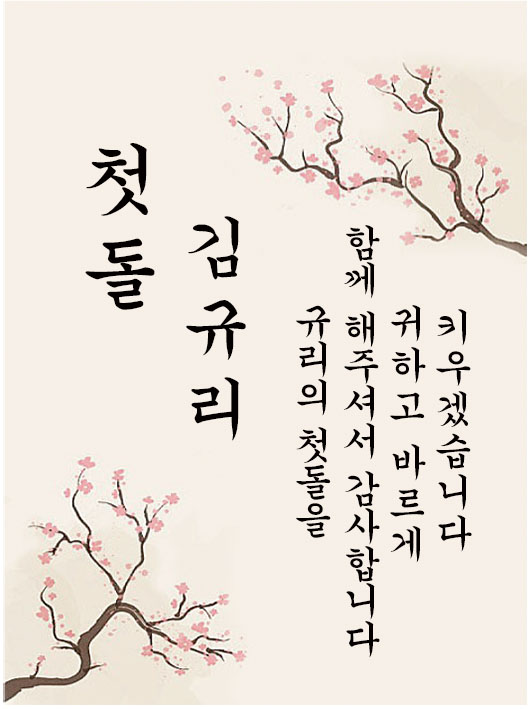 첫돌
김규리
규리의 첫돌을
함께 해주셔서 감사합니다
귀하고 바르게
키우겠습니다